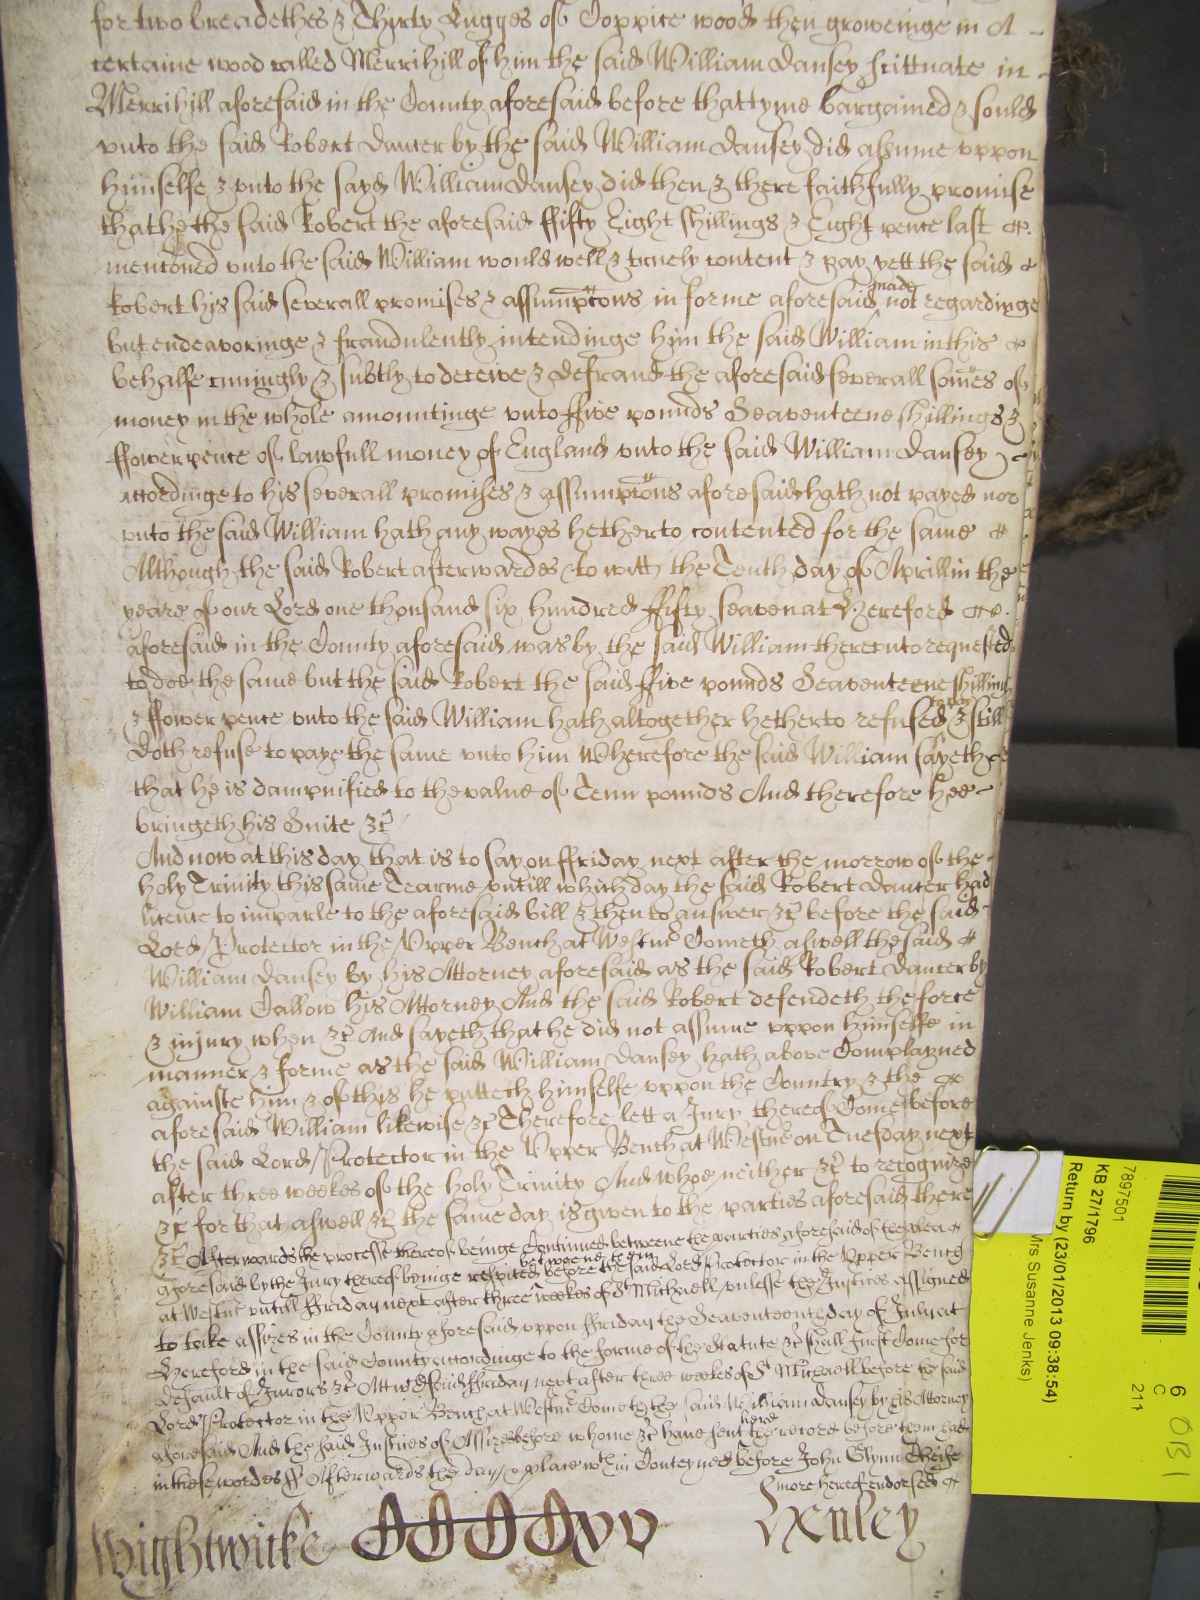 for two breadethes & Thirty Lugges of Coppice wood then groweinge in A
certaine wood called Merrihill of him the said William Dansey scittuate in
Merrihill aforesaid in the County aforesaid before that tyme bargained & sould
unto the said Robert Dauter by the said William Dansey did assume uppon
himselfe & unto the sayd William Dansey did then & there faithfully promise
that he the said Robert the aforesaid ffifty Eight shillings & Eight pence last
mencõned unto the said William would well & truely content & pay yett the said
Robert his said severall promises & assumptõns in forme aforesaid made not regardinge
but endeavoringe & fraudulently intendinge him the said William in this
behalfe cuningly & subtly to deceive & defraud the aforesaid severall som̃es of
money in the whole amountinge unto ffive pounds Seaventeene shillings &
ffower pence of lawfull money of England unto the said William Dansey
accordinge to his severall promises & assumptõns aforesaid hath not payed nor
unto the said William hath any wayes hetherto contented for the same
Although the said Robert afterwardes to witt the Tenth day of Aprill in the
yeare of our Lord one thousand six hundred ffifty seaven at Hereford
aforesaid in the County aforesaid was by the said William thereunto requested
to doe the same but the said Robert the said ffive pounds Seaventeene shillings
& ffower pence unto the said William hath altogether hetherto refused to pay & still
doth refuse to paye the same unto him Wherefore the said William sayeth
that he is dampnified to the value of Tenn pounds And therefore hee
bringeth his Suite &c̃
And now at this day that is to say on ffriday next after the morrow of the
holy Trinity this same Tearme untill which day the said Robert Dauter had
licence to imparle to the aforesaid bill & then to answer &c̃ before the said
Lord Protector in the Upper Bench at Westm̃ Cometh aswell the said
William Dansey by his Attorney aforesaid as the said Robert Dauter by
William Callow his Attorney And the said Robert defendeth the force
& injury when &c̃ And sayeth that he did not assume uppon himselfe in
manner & forme as the said William Dansey hath above Complayned
againste him & of this he putteth himselfe uppon the Country & the
aforesaid William likewise &c̃ Therefore lett a Jury thereof Come before
the said Lord Protector in the Upper Bench at Westm̃ on Tuesday next
after three weekes of the holy Trinity And whoe neither &c̃ to recognize
&c̃ for that aswell &c̃ the same day is given to the parties aforesaid there
&c̃ Afterwards the processe thereof beinge Continued betweene the parties aforesaid of the plea
aforesaid by the Jury thereof beinge respited betweene them before the said Lord Protector in the Upper Bench
at Westm̃ untill ffriday next after three weekes of St Michaell unlesse the Justices assigned
to take assizes in the County aforesaid uppon ffriday the Seaventeenth day of July at
Hereford in the said County accordinge to the forme of the Statute &c̃ shall first Come for
default of Jurors &c̃ Att wch said ffriday next after three weekes of St Michaell before the said
Lord Protector in the Upper Bench at Westm̃ Cometh the said William Dansey by his Attorney
aforesaid And the said Justices of Assize before whome &c̃ have sent here the record before them had
in these wordes ss Afterwards the day & place wthin Conteyned before John Glynn Cheife
more hereof endorsed
Wightwicke
Lxnley
7897501
KB 27/1796
Return by (23/01/2013 09:38:54)
Mrs Susanne Jenks)
6
C
211